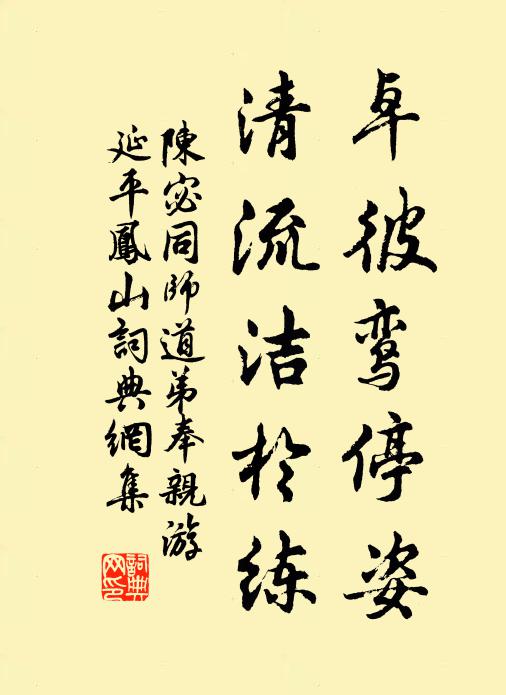 卓彼鸾停姿
清流洁於练
陳宓同師道弟奉親游
延平鳳山詞典網集
詞典
网印